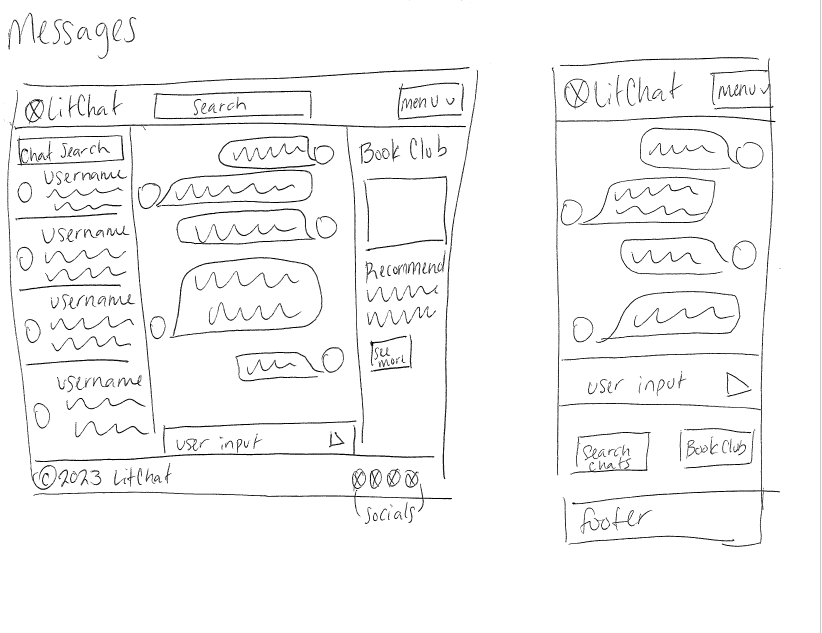 Messages
LitChat
Search
menu
Chat Search
Username
Username
Username
Username
user input
Book Club
Recommend
See
more
©2023 LitChat
Socials
LitChat
menu
user input
Search
chats
Book Club
footer